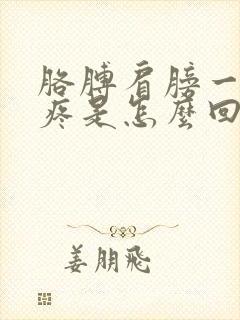 胳膊肩膀一
疼是怎麼回
姜朋飛